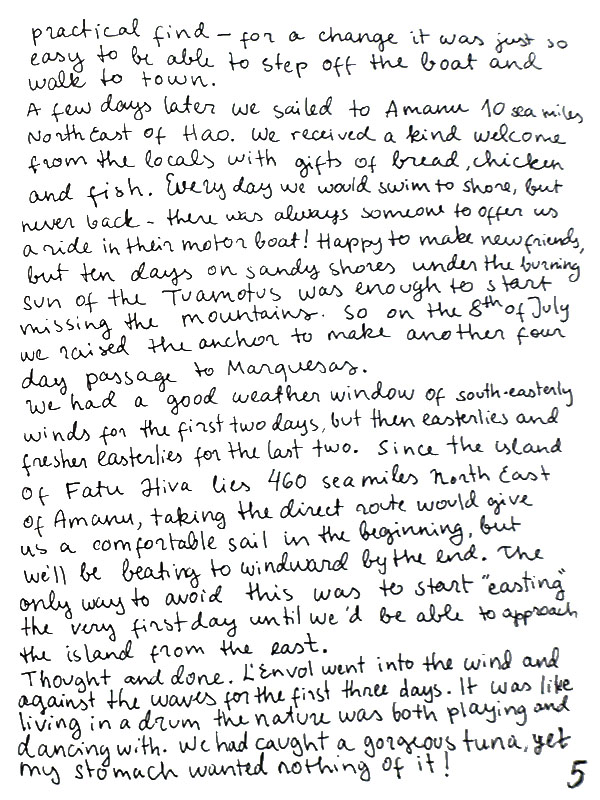 practical find - for a change it was just so
easy to be able to step off the boat and
walk to town.
A few days later we sailed to Amanu 10 sea miles
North East of Hao. We received a kind welcome
from the locals with gifts of bread, chicken
and fish. Every day we would swim to shore, but
never back - there was always someone to offer us
a ride in their motor boat! Happy to make new friends,
but ten days on sandy shores under the burning
sun of the Tuamotus was enough to start
missing the mountains. So on the 8th of July
we raised the anchor to make another four
day passage to Marquesas.
We had a good weather window of south-easterly
winds for the first two days, but then easterlies and
fresher easterlies for the last two. Since the island
of Fatu Hiva lies 460 sea miles North East
of Amanu, taking the direct route would give
us a comfortable sail in the beginning, but
we'll be beating to windward by the end. The
only way to avoid this was to start "easting"
the very first day until we'd be able to approach
the island from the east.
Thought and done. L'Envol went into the wind and
against the waves for the first three days. It was like
living in a drum the nature was both playing and
dancing with. We had caught a gorgeous tuna, yet
my stomach wanted nothing of it!
5